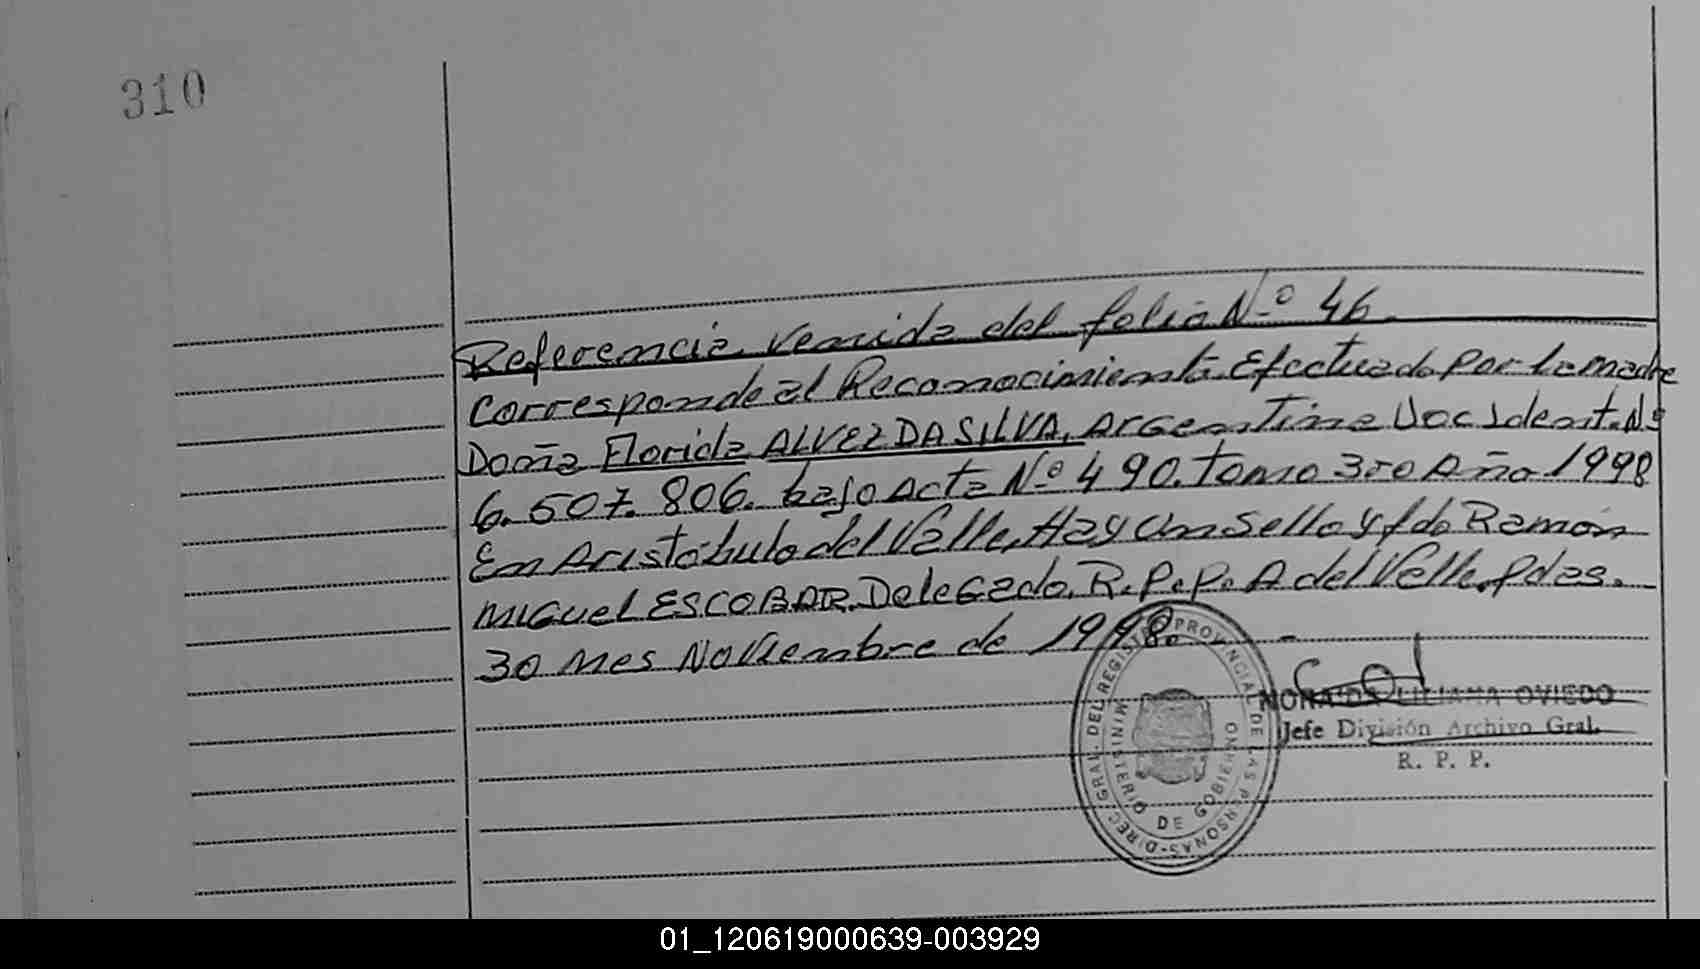 310
Referencia venida del folio Nº 46.
Corresponde al Reconocimiento Efectuado por la madre
Doña Florida ALVEZ DA SILVA, Argentina Doc Ident. Nº
6.607.806. bajo Acta Nº 490. tomo 3ro Año 1998
En Aristóbulo del Valle, Hay un Sello y fdo Ramón
Miguel ESCOBAR. Delegado. R.P.P. A del Valle, Pdas.
30 mes Noviembre de 1998. -
DIREC. GRAL. DEL REGISTRO PROVINCIAL DE LAS PERSONAS
MINISTERIO DE GOBIERNO
LILIANA OVIEDO
Jefe División Archivo Gral.
R. P. P.
01_120619000639-003929